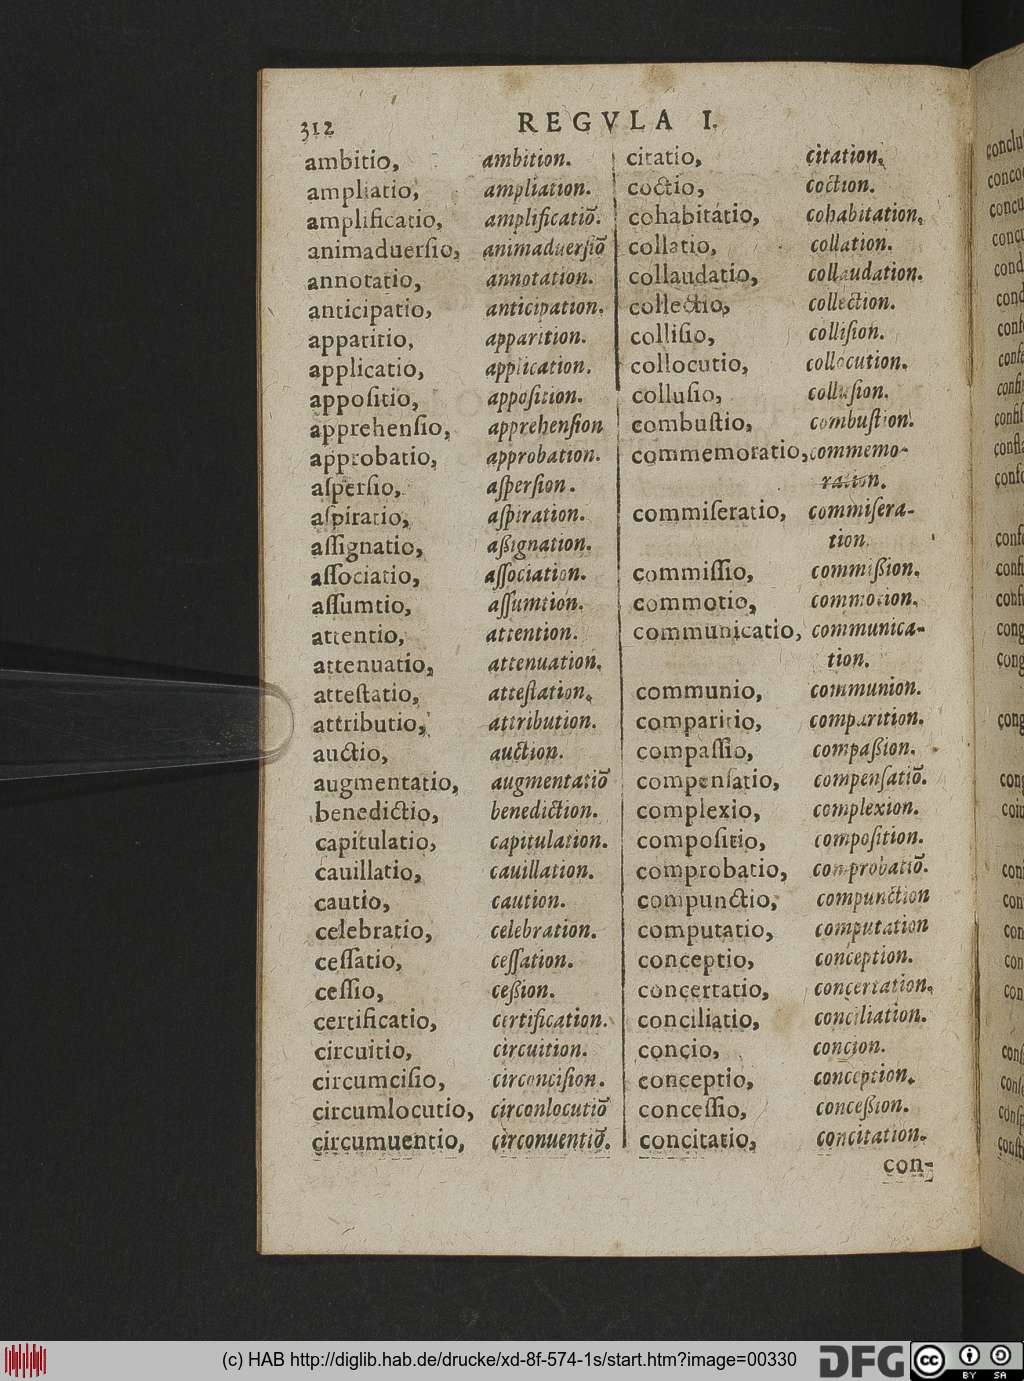 312
REGVLA I.
ambitio, ambition.
ampliatio, ampliation.
amplificatio, amplificatiō.
animaduerſio, animaduerſiō
annotatio, annotation.
anticipatio, anticipation.
apparitio, apparition.
applicatio, application.
appoſitio, appoſition.
apprehenſio, apprehenſion
approbatio, approbation.
aſperſio, aſperſion.
aſpiratio, aſpiration.
aſſignatio, aßignation.
aſſociatio, aſſociation.
aſſumtio, aſſumtion.
attentio, attention.
attenuatio, attenuation.
atteſtatio, atteſtation.
attributio, attribution.
auctio, auction.
augmentatio, augmentatiō
benedictio, benediction.
capitulatio, capitulation.
cauillatio, cauillation.
cautio, caution.
celebratio, celebration.
ceſſatio, ceſſation.
ceſſio, ceßion.
certificatio, certification.
circuitio, circuition.
circumciſio, circonciſion.
circumlocutio, circonlocutiō
circumuentio, circonuentiō.
citatio, citation.
coctio, coction.
cohabitatio, cohabitation.
collatio, collation.
collaudatio, collaudation.
collectio, collection.
colliſio, colliſion.
collocutio, collocution.
colluſio, colluſion.
combuſtio, combuſtion.
commemoratio, commemo-
ration.
commiſeratio, commiſera-
tion.
commiſſio, commißion.
commotio, commotion.
communicatio, communica-
tion.
communio, communion.
comparitio, comparition.
compaſſio, compaßion.
compenſatio, compenſatiō.
complexio, complexion.
compoſitio, compoſition.
comprobatio, comprobatiō.
compunctio, compunction
computatio, computation
conceptio, conception.
concertatio, concertation.
conciliatio, conciliation.
concio, concion.
conceptio, conception.
conceſſio, conceßion.
concitatio, concitation.
con-
(c) HAB http://diglib.hab.de/drucke/xd-8f-574-1s/start.htm?image=00330
DFG
cc BY SA